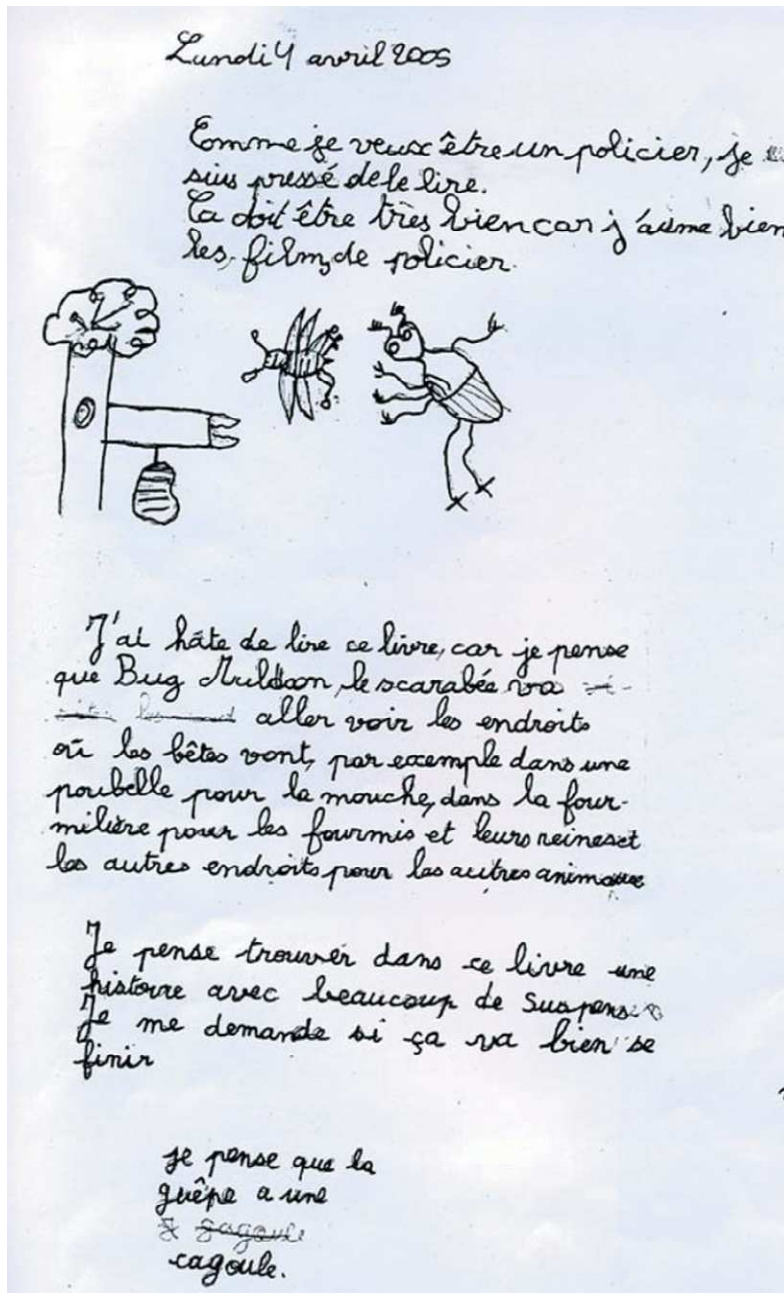 Lundi 4 avril 2005
Comme je veux être un policier, je
suis pressé de le lire.
Ca doit être très bien car j'aime bien
les films de policier.
J'ai hâte de lire ce livre, car je pense
que Bug Muldoon, le scarabée va
aller voir les endroits
où les bêtes vont, par exemple dans une
poubelle pour la mouche, dans la four-
milière pour les fourmis et leurs reines et
les autres endroits pour les autres animaux
Je pense trouver dans ce livre une
histoire avec beaucoup de suspens
Je me demande si ça va bien se
finir
je pense que la
guêpe a une
gagoule
cagoule.